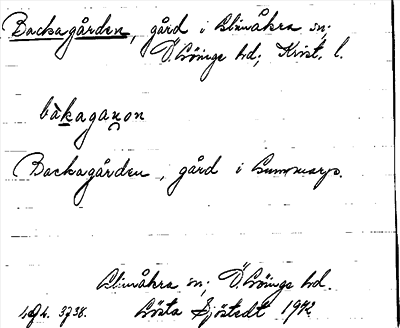 Backagården, gård i Glimåkra sn;
Ö. Göinge hd; Krist. l.
bakagaṇon
Backagården, gård i Gummarp.
Glimåkra sn; Ö. Göinge hd.
Gösta Sjöstedt 1942